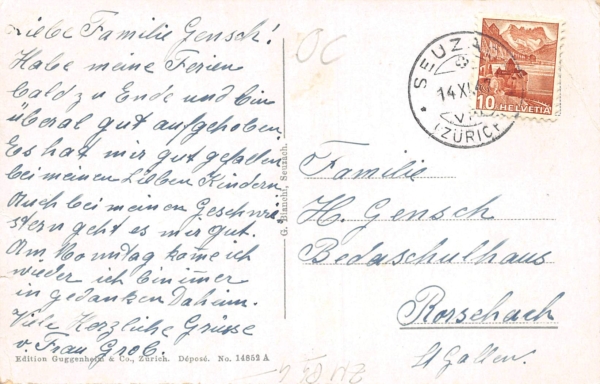 Liebe Familie Gensch!
Habe meine Ferien
bald zu Ende und bin
überal gut aufgehoben.
Es hat mir gut gefallen
bei meinen Lieben Kindern
Auch bei meinen Geschwi
stern geht es mir gut.
Am Monntag kome ich
wieder ich bin imer
in gedanken Daheim.
Viele Herzliche Grüsse
v Frau Grob.
Edition Guggenheim & Co., Zürich. Déposé. No. 14852 A
G. Bianchi, Seuzach.
OC
SEUZACH
14 XI
(ZÜRICH)
10 HELVETIA
Familie
H. Gensch
Bedaschulhaus
Rorschach
St Gallen.